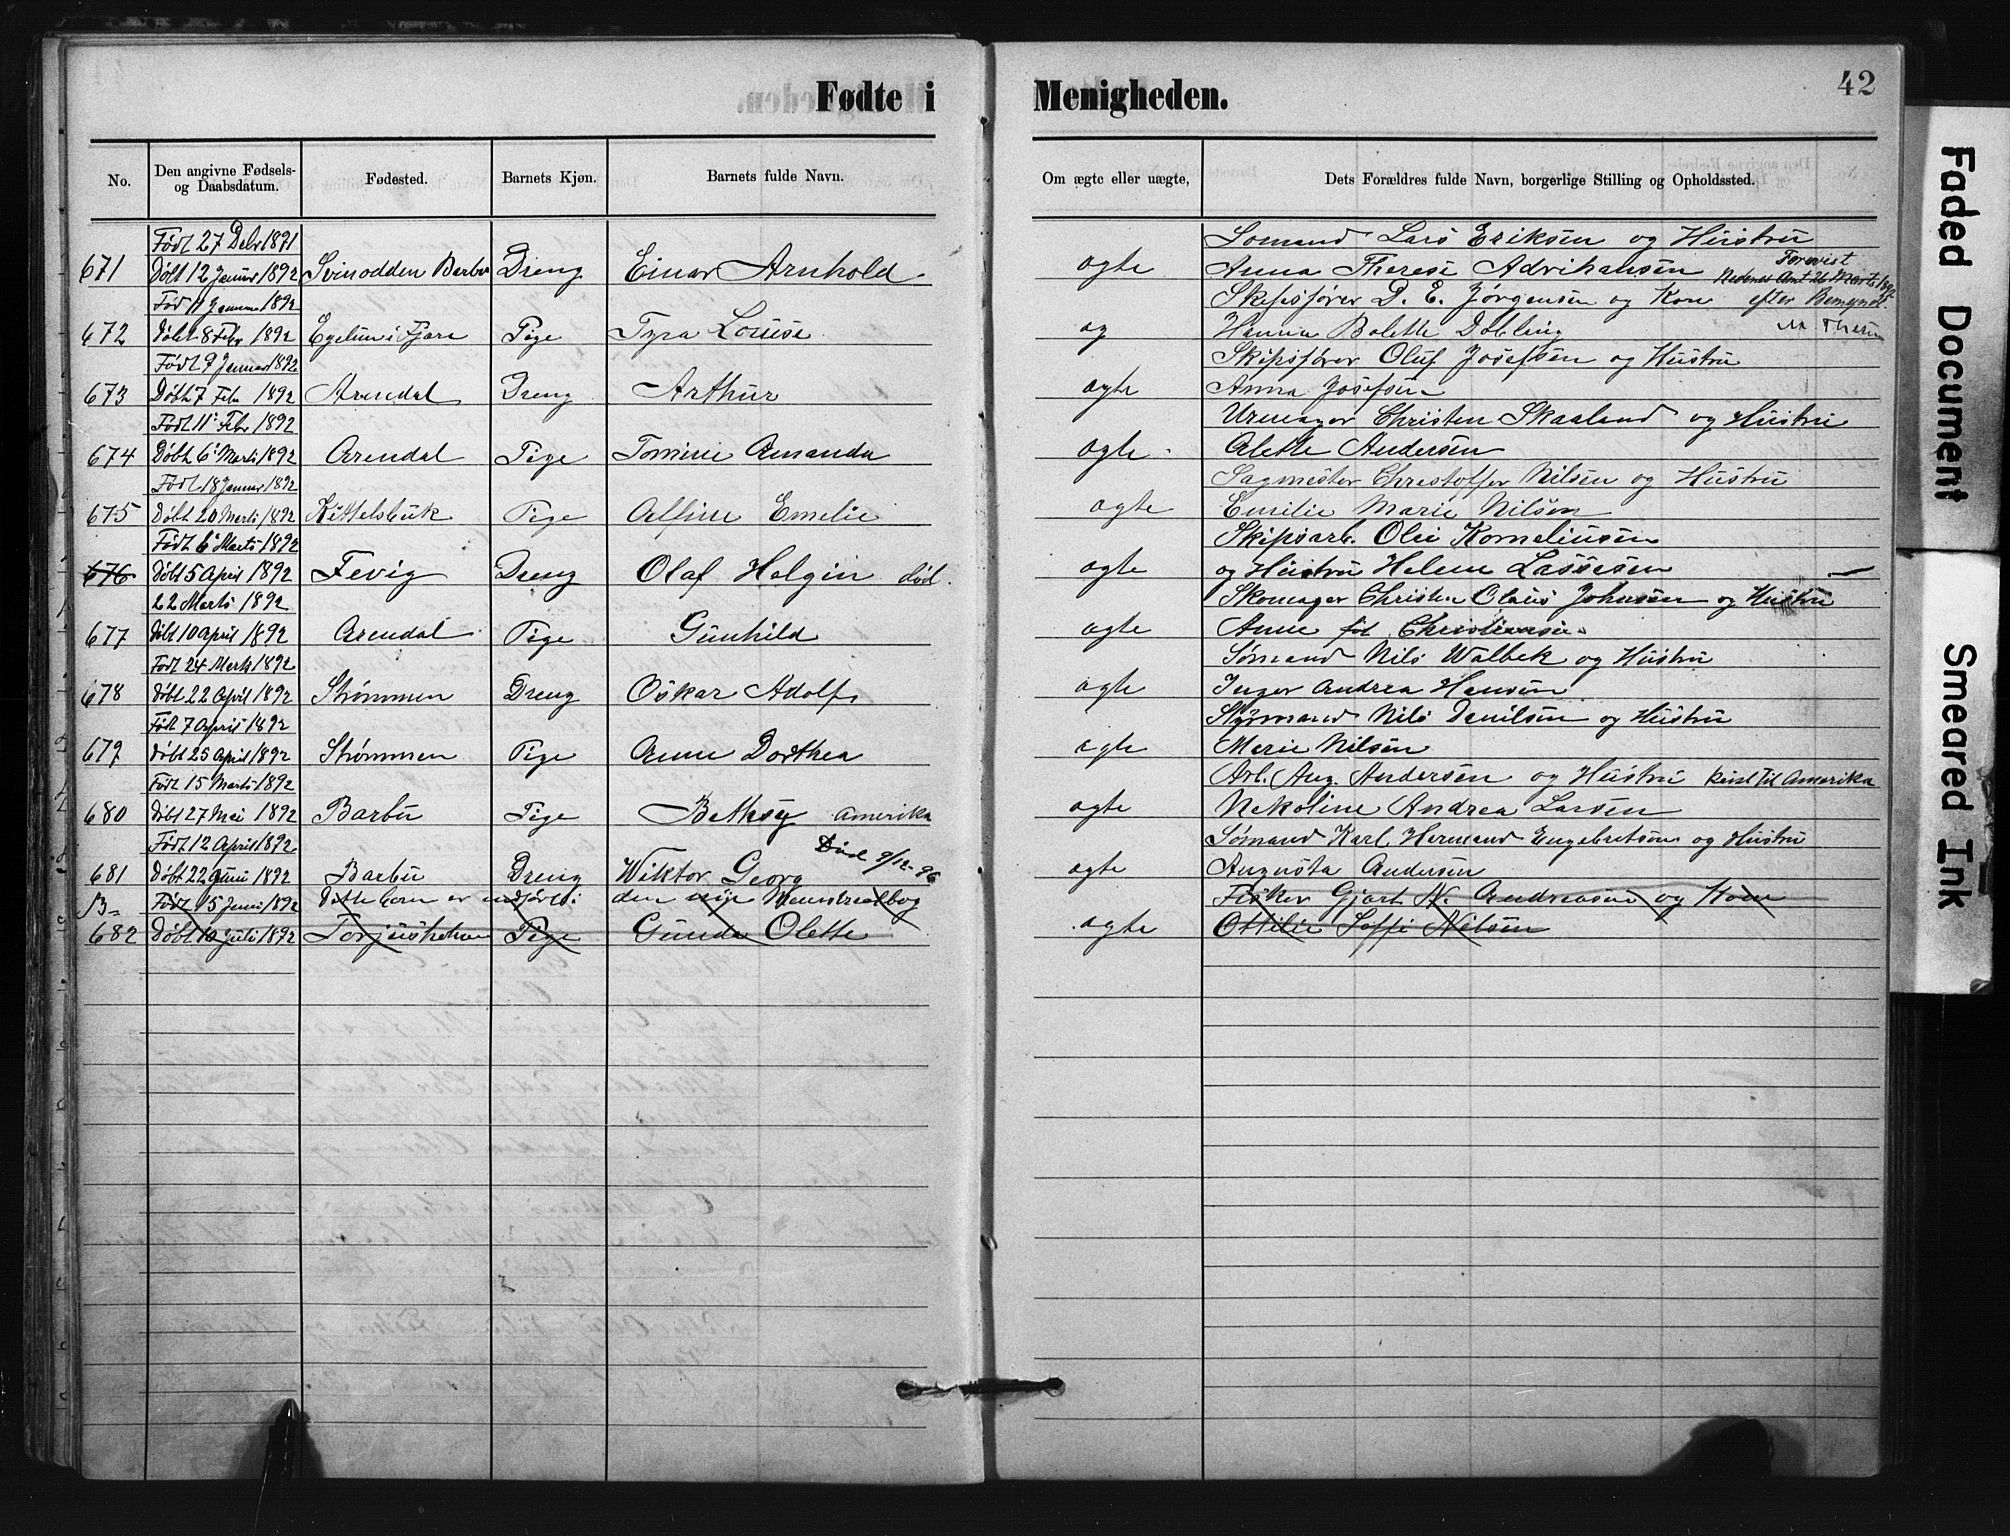 Fødte i Menigheden. 42
No. Den angivne Fødsels- og Daabsdatum. Fødested. Barnets Kjøn. Barnets fulde Navn. Om ægte eller uægte, Dets Forældres fulde Navn, borgerlige Stilling og Opholdssted.
Født 27 Debr 1891 Sømand Lars Eriksen og Hustru
671 Døbt 12 Januar 1892 Svinodden Barbu Dreng Einar Arnhold ægte Anna Therese Adrihansen Forevist Nedenes Amt 26 Marts 1897
Fød 11 Januar 1892 Skipsfører D. E. Jørgensen og Kone efter Bemynd.
672 Døbt 8 Febr 1892 Egelun i Fjære Pige Tyra Louise æg Hanna Bolette Døbling
Født 9 Januar 1892 Skipsfører Oluf Josefsen og Hustru
673 Døbt 7 Feb 1892 Arendal Dreng Arthur ægte Anna Josefsen
Født 11 Febr 1892 Urmager Christen Skaaland og Hustru
674 Døbt 6 Marts 1892 Arendal Pige Tomine Amanda ægte Alette Andersen
Født 18 Januar 1892 Sagmester Christoffer Nilsen og Hustru
675 Døbt 20 Marts 1892 Kittelsbuk Pige Alfine Emelie ægte Emilie Marie Nilsen
Født 6 Marts 1892 Skipsarb. Olei Korneliusen
676 Døbt 5 April 1892 Fevig Dreng Olaf Helgin død. ægte og Hustru Helene Lassesen
22 Marts 1892 Skomager Christen Olaus Johnsen og Hustru
677 Døbt 10 April 1892 Arendal Pige Gunhild ægte Anne fød Christiansen
Født 24 Marts 1892 Sømand Nils Walbek og Hustru
678 Døbt 22 April 1892 Strømmen Dreng Oskar Adolf ægte Inger Andrea Hansen
Født 7 April 1892 Styrmand Nils Danilsen og Hustru
679 Døbt 25 April 1892 Strømmen Pige Anne Dorthea ægte Marie Nilsen
Født 15 Marts 1892 Arb. Aug. Andersen og Hustru Reist til Amerika
680 Døbt 27 Mai 1892 Barbu Pige Bethsy Amerika ægte Nekoline Andrea Larsen
Født 12 April 1892 Død 9/12-96 Sømand Karl Hermand Engebretsen og Hustru
681 Døbt 22 Juni 1892 Barbu Dreng Wiktor Georg ægte Augusta Andersen
B- Født 15 Juni 1892 Dette barn er indført i den nye Fisker Gjert N. Andreasen og Kone
682 Døbt 10 Juli 1892 Pige Gunda Olette ægte Ottilie Soffi Nilsen
Faded Document
Smeared Ink